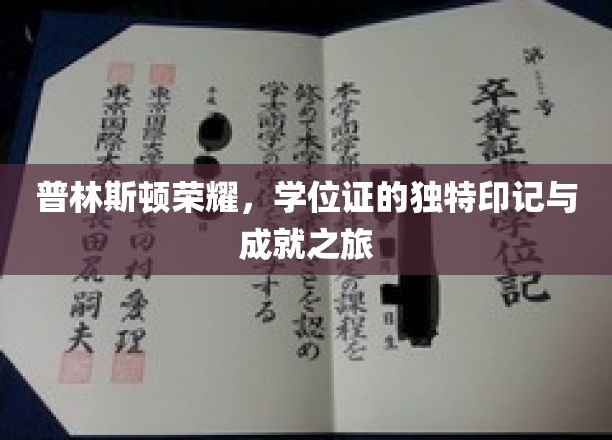 普林斯顿荣耀，学位证的独特印记与
成就之旅
第 号
卒業証書 学位記
本学商学部 定の課程を
修めて本学 ことを認め
学士(商学)の学 する
平成
東京国際大学 田村愛理
東京国際大学 長田尻嗣夫